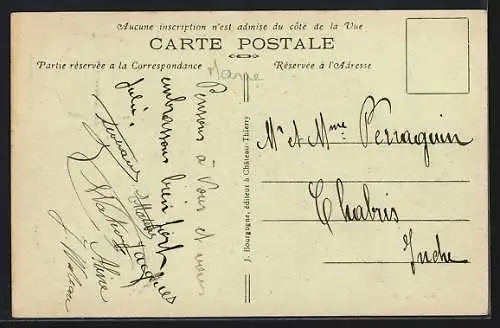 Aucune inscription n'est admise du côté de la Vue
CARTE POSTALE
Partie réservée à la Correspondance
Réservée à l'Adresse
Marne
Pensons à Vous et vous
embrassons bien fort
Julia.
Jacques
Aline
J. Bourgogne, éditeur à Château-Thierry
Mr et Mme Perraguin
Chabris
Indre